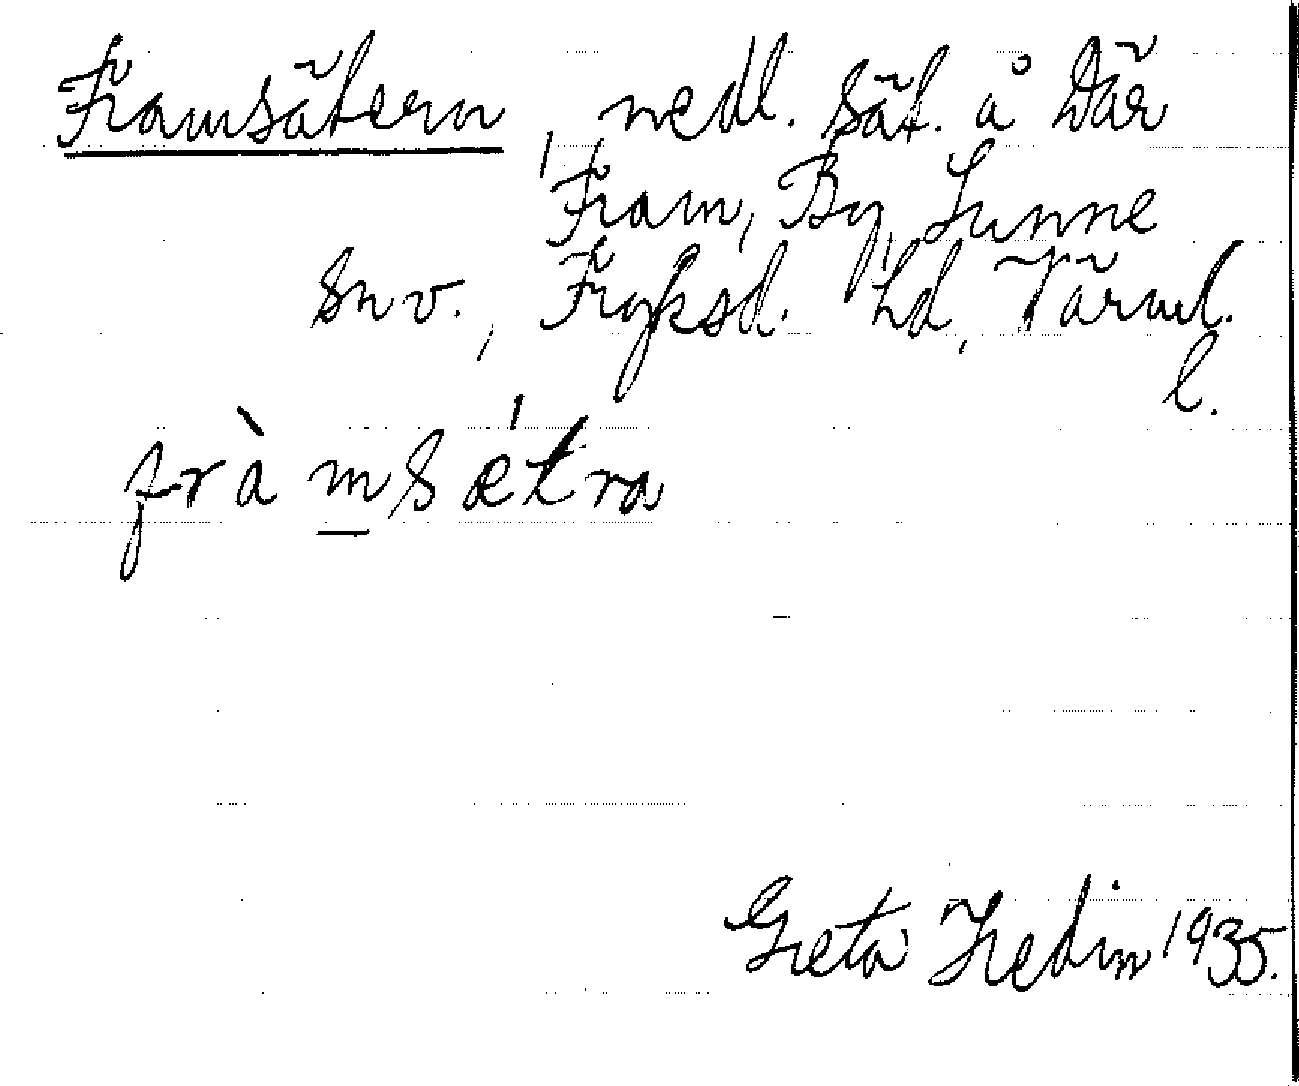 Framsätern, nedl. sät. å Där
Fram, By, Sunne
snv., Fryksd. hd, Värml.
l.
fràmsǽtra
Greta Hedin 1935.